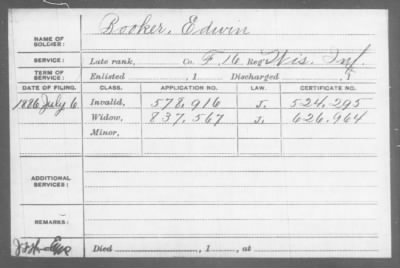 NAME OF SOLDIER: Booker, Edwin
SERVICE: Late rank, Co. F. 16 Reg't Wis. Inf.
TERM OF SERVICE: Enlisted , 1 Discharged , 1
DATE OF FILING. CLASS. APPLICATION NO. LAW. CERTIFICATE NO.
1886 July 6 Invalid, 578,916 J. 524,295
Widow, 837,567 J. 626,964
Minor,
ADDITIONAL SERVICES:
REMARKS:
Died , 1 , at